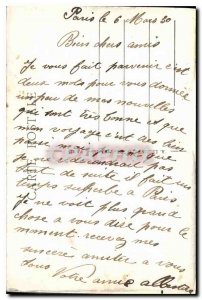 Paris le 6 Mars 30
Biens chers amis
Je vous fait parvenir c'est
deux mots pour vous donner
un peu de mes nouvelles
qui sont très bonne et que
mon voyage c'est
pas
tout de suite il fait un
temps superbe a Paris
Je ne voit plus grand
chose a vous dire pour le
moment recevez mes
sincère amitier a vous
tous
Votre amie